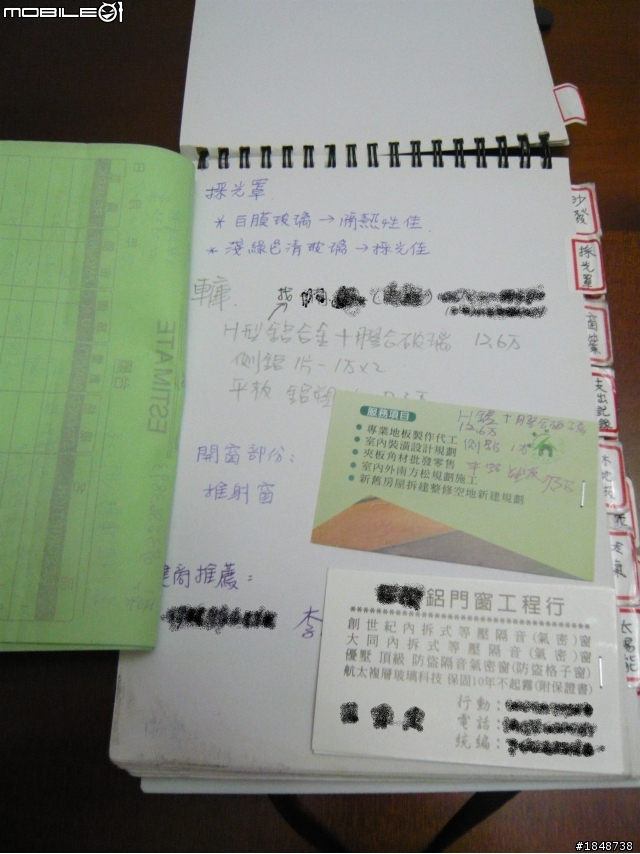 MOBILE01
採光罩
* 白膜玻璃→隔熱性佳
* 淺綠色清玻璃→採光佳
車庫 找
H型鋁合金+膠合玻璃 12.6万
側鋁1片-1万×2
平板
開窗部份:
推射窗
建商推薦:
李
ESTIMATE
沙發
採光罩
窗簾
支出記錄
木地板
太陽能
服務項目
• 專業地板製作代工
• 室內裝潢設計規劃
• 夾板角材批發零售
• 室內外南方松規劃施工
• 新舊房屋拆建整修空地新建規劃
12.6万
鋁門窗工程行
創世紀內拆式等壓隔音(氣密)窗
大同內拆式等壓隔音(氣密)窗
優墅頂級防盜隔音氣密窗(防盜格子窗)
航太複層玻璃科技 保固10年不起霧(附保證書)
行動:
電話:
統編:
#1848738